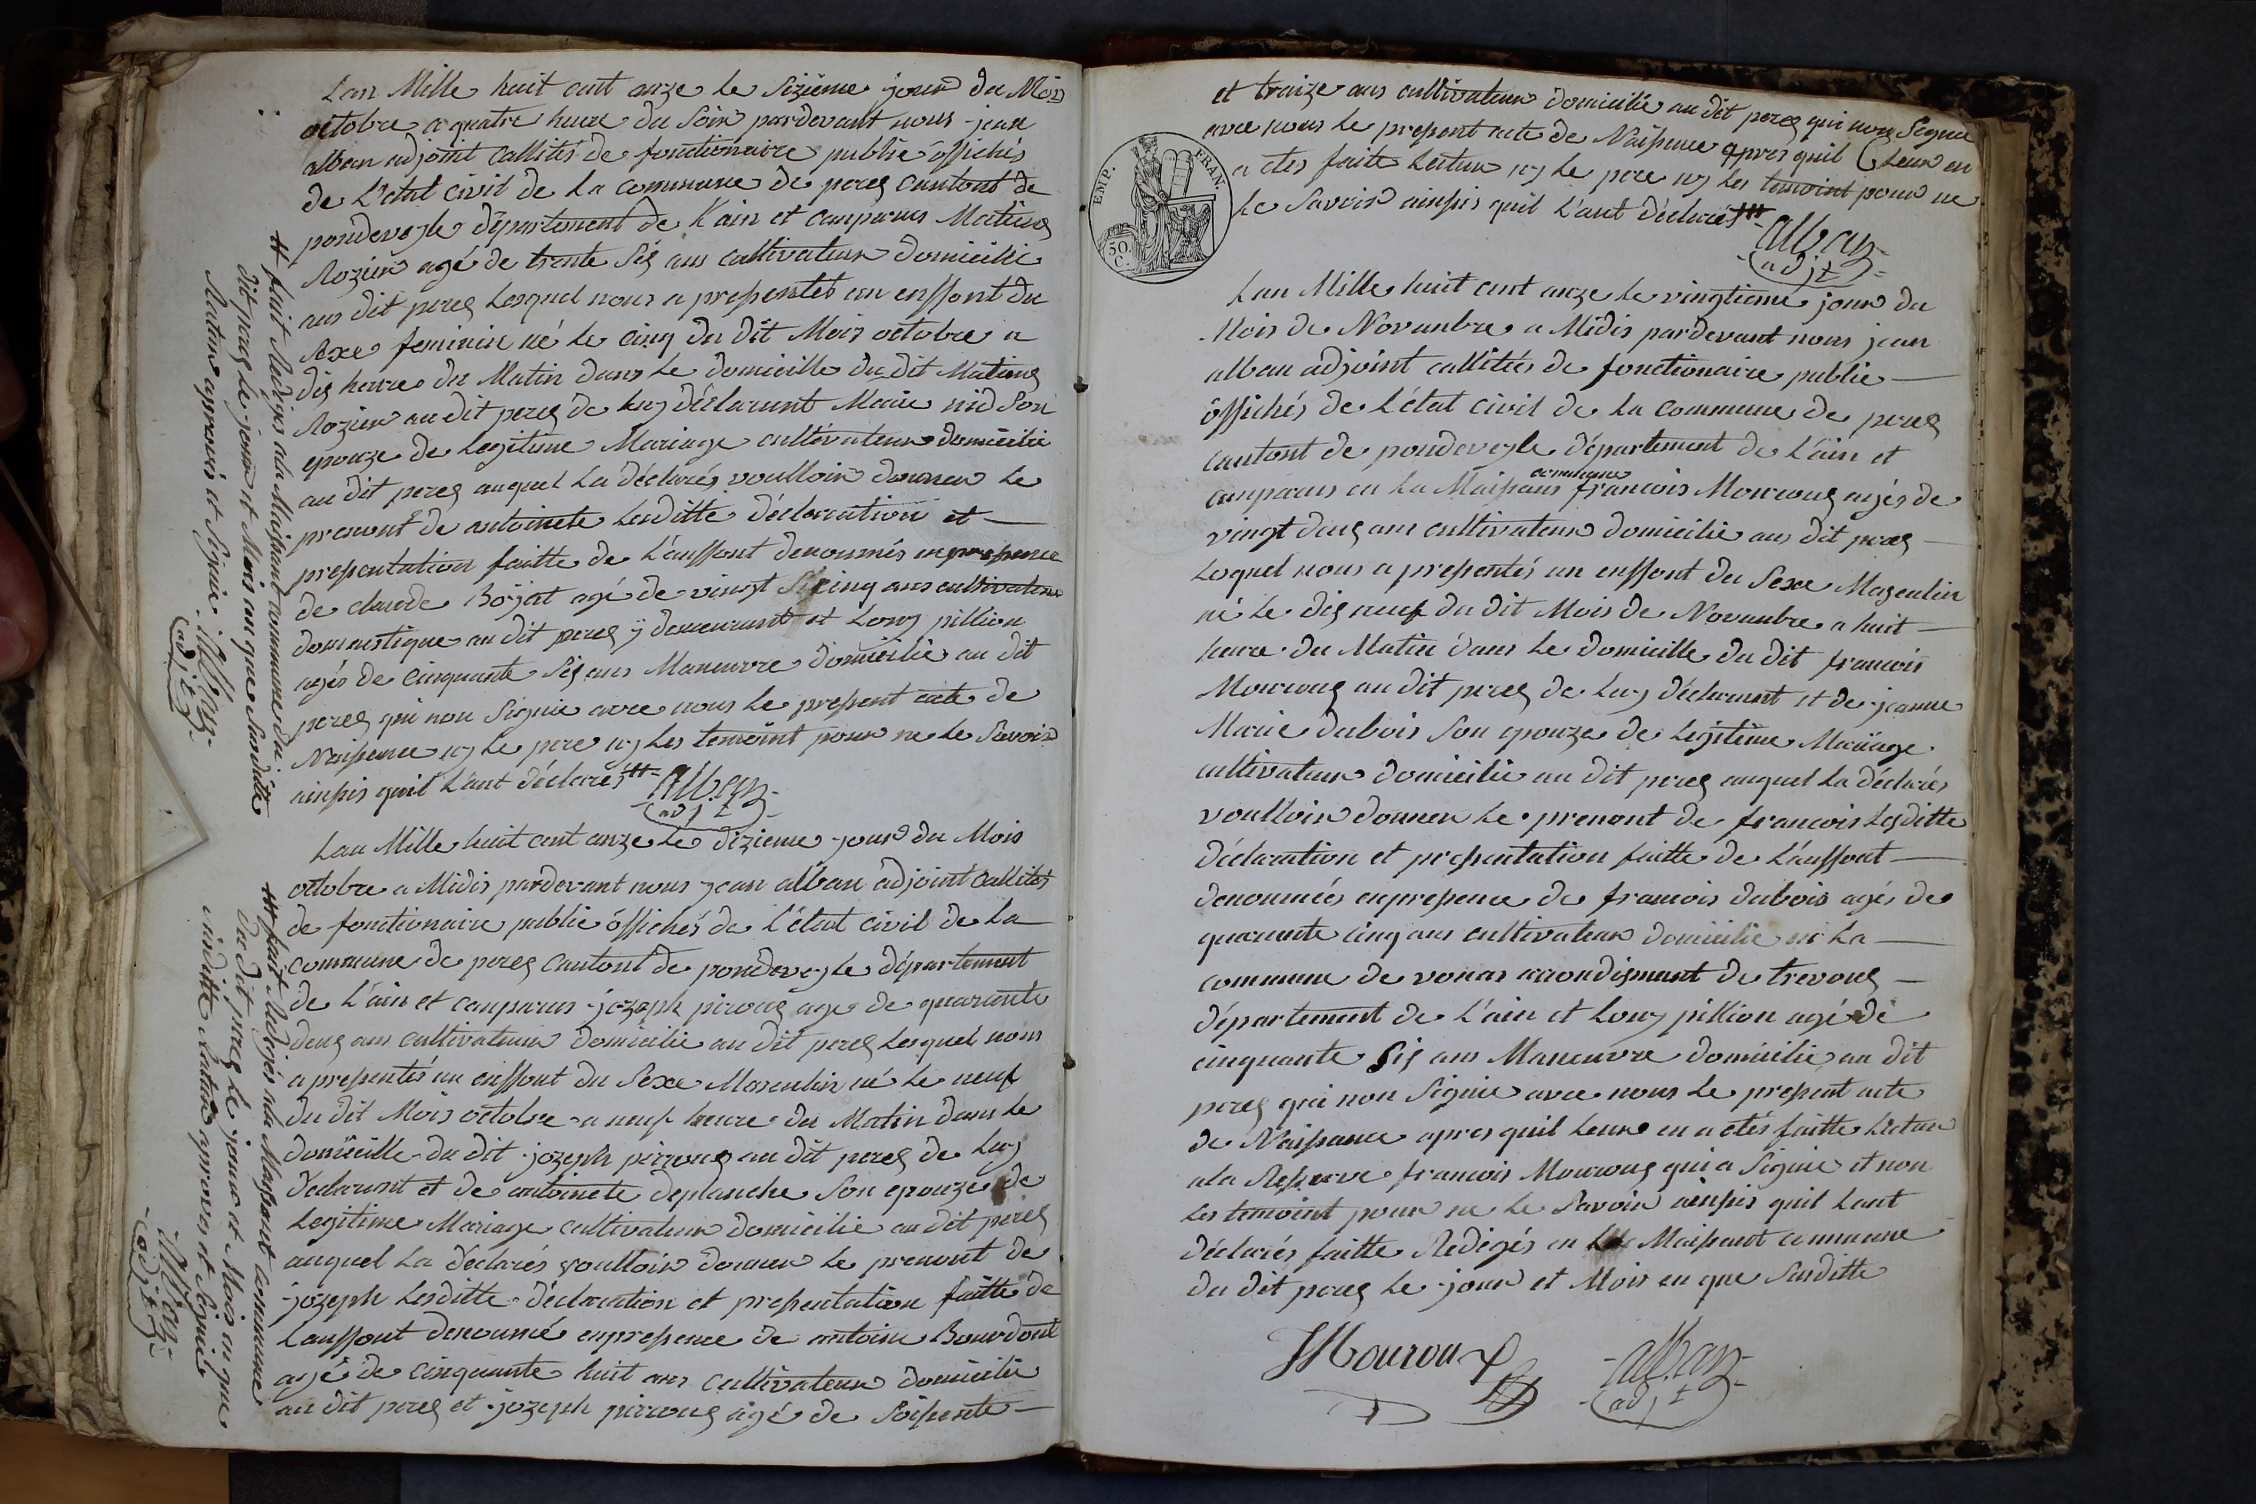 Lan Mille huit cent onze le Sizième jour du Mois
octobre a quatre heure du Soir pardevant nous jean
alban adjoint Callités de fonctionaire public offichés
de L'etat Civil de La commune de perex Cantont de
pondeveyle département de L'ain et Comparus Matieux
Rozier agé de trente Six ans Cultivateur domicilié
aus dit perex Lesquel nous a pressentés un enffont du
Sexe feminin né le Cinq du dit Mois octobre a
dix heure du Matin dans Le domicille du dit Matieux
Rozier au dit perex de Luy déclarant Marie nid Son
epouze de Legitime Mariage cultivateur domicilié
au dit perex auquel La déclarés voulloir donner Le
prenont de antoinete Lesditte déclaration et
pressentation faitte de L'enffont denoumés en pressence
de claude Bojat agé de vingt cinq ans cultivateur
domestique au dit perex y demeurant et Louy pillion
agés de Cinquante Six ans Maneuvre domicilié au dit
perex qui non Signie avec nous Le pressent acte de
Naissence ny Le pere ny Les temoint pour ne le Savoir
ainssis quil L'ant déclarés
alban
adjt
fait Rediges ala Maissont commune du
dit perex Le jour et Mois an que Surditte
Lecture aprouvés et Signie. Alban
adjt
Lan Mille huit cent onze Le dizieme jour du Mois
octobre a Midis pardevant nous jean alban adjoint Callités
de fonctionaire public offichés de L'état Civil de La
commune de perex Cantont de pondeveyle département
de L'ain et comparus jozeph piroux age de quarante
deux ans cultivateur domicilié au dit perex Lesquel nous
a pressentés un enffont du Sexe Masculin né Le neuf
du dit Mois octobre a neuf heure du Matin dans Le
domicille du dit jozeph pirroux au dit perex de Luy
déclarant et de antoinete deplanche Son epouze de
Legitime Mariage cultivateur domicilié au dit perex
auquel La déclarés voulloir donner Le prenont de
jozeph Lesditte déclaration et pressentation faitte de
Lanffont denoumé enpressence de antoine Bourdont
agé de cinquante huit ans Cultivateur domicilié
au dit perex et jozeph pirroux agé de Soissente
fait Redigés ala Maissont commune
du dit perex Le jour et Mois an que
surditte Lecture aprovés et Signié
Alban
adjt
et traize ans cultivateur domicilié au dit perex qui non Signie
avec nous Le pressent acte de Naissence apres quil Leur en
a etés faitte Lecture ny Le pere ny Les temoint pour ne
Le Savoir ainssis quil L'ant déclarés
alban
adjt
EMP. FRAN.
50 C.
Lan Mille huit cent onze Le vingtieme jour du
Mois de Novembre a Midis pardevant nous jean
alban adjoint callittés de fonctionaire public
offichés de L'état Civil de La commune de perex
cantont de pondeveyle département de L'ain et
comunne
comparus en La Maissons francois Mouroux agés de
vingt deux ans cultivateur domicilié aus dit perex
Lesquel nous a pressentés un enffont du Sexe Masculin
né Le dix neuf du dit Mois de Novembre a huit
heure du Matin dans Le domicille du dit francois
Mouroux au dit perex de Luy déclarant et de jeanne
Marie dubois Son epouze de Legitime Mariage
cultivateur domicilié au dit perex auquel La déclarés
voulloir donner Le prenont de francois Lesditte
déclaration et pressentation faitte de L'auffont
denoumés enpressence de francois dubois agés de
quarante cinq ans cultivateur domicilié en La
commune de vonas arrondisment de trevoux
département de L'ain et Louy pillion agé de
cinquante Six ans Maneuvre domicilié au dit
perex qui non Signie avec nous Le pressent acte
de Naissance apres quil Leur en a etés faitte Lecture
ala Resserve francois Mouroux qui a Signie et non
Les temoint pour ne Le Savoir ainssis quil L'ant
déclarés faitte Redigés en La Maissont commune
du dit perex Le jour et Mois en que Surditte
Mouroux
alban
adjt